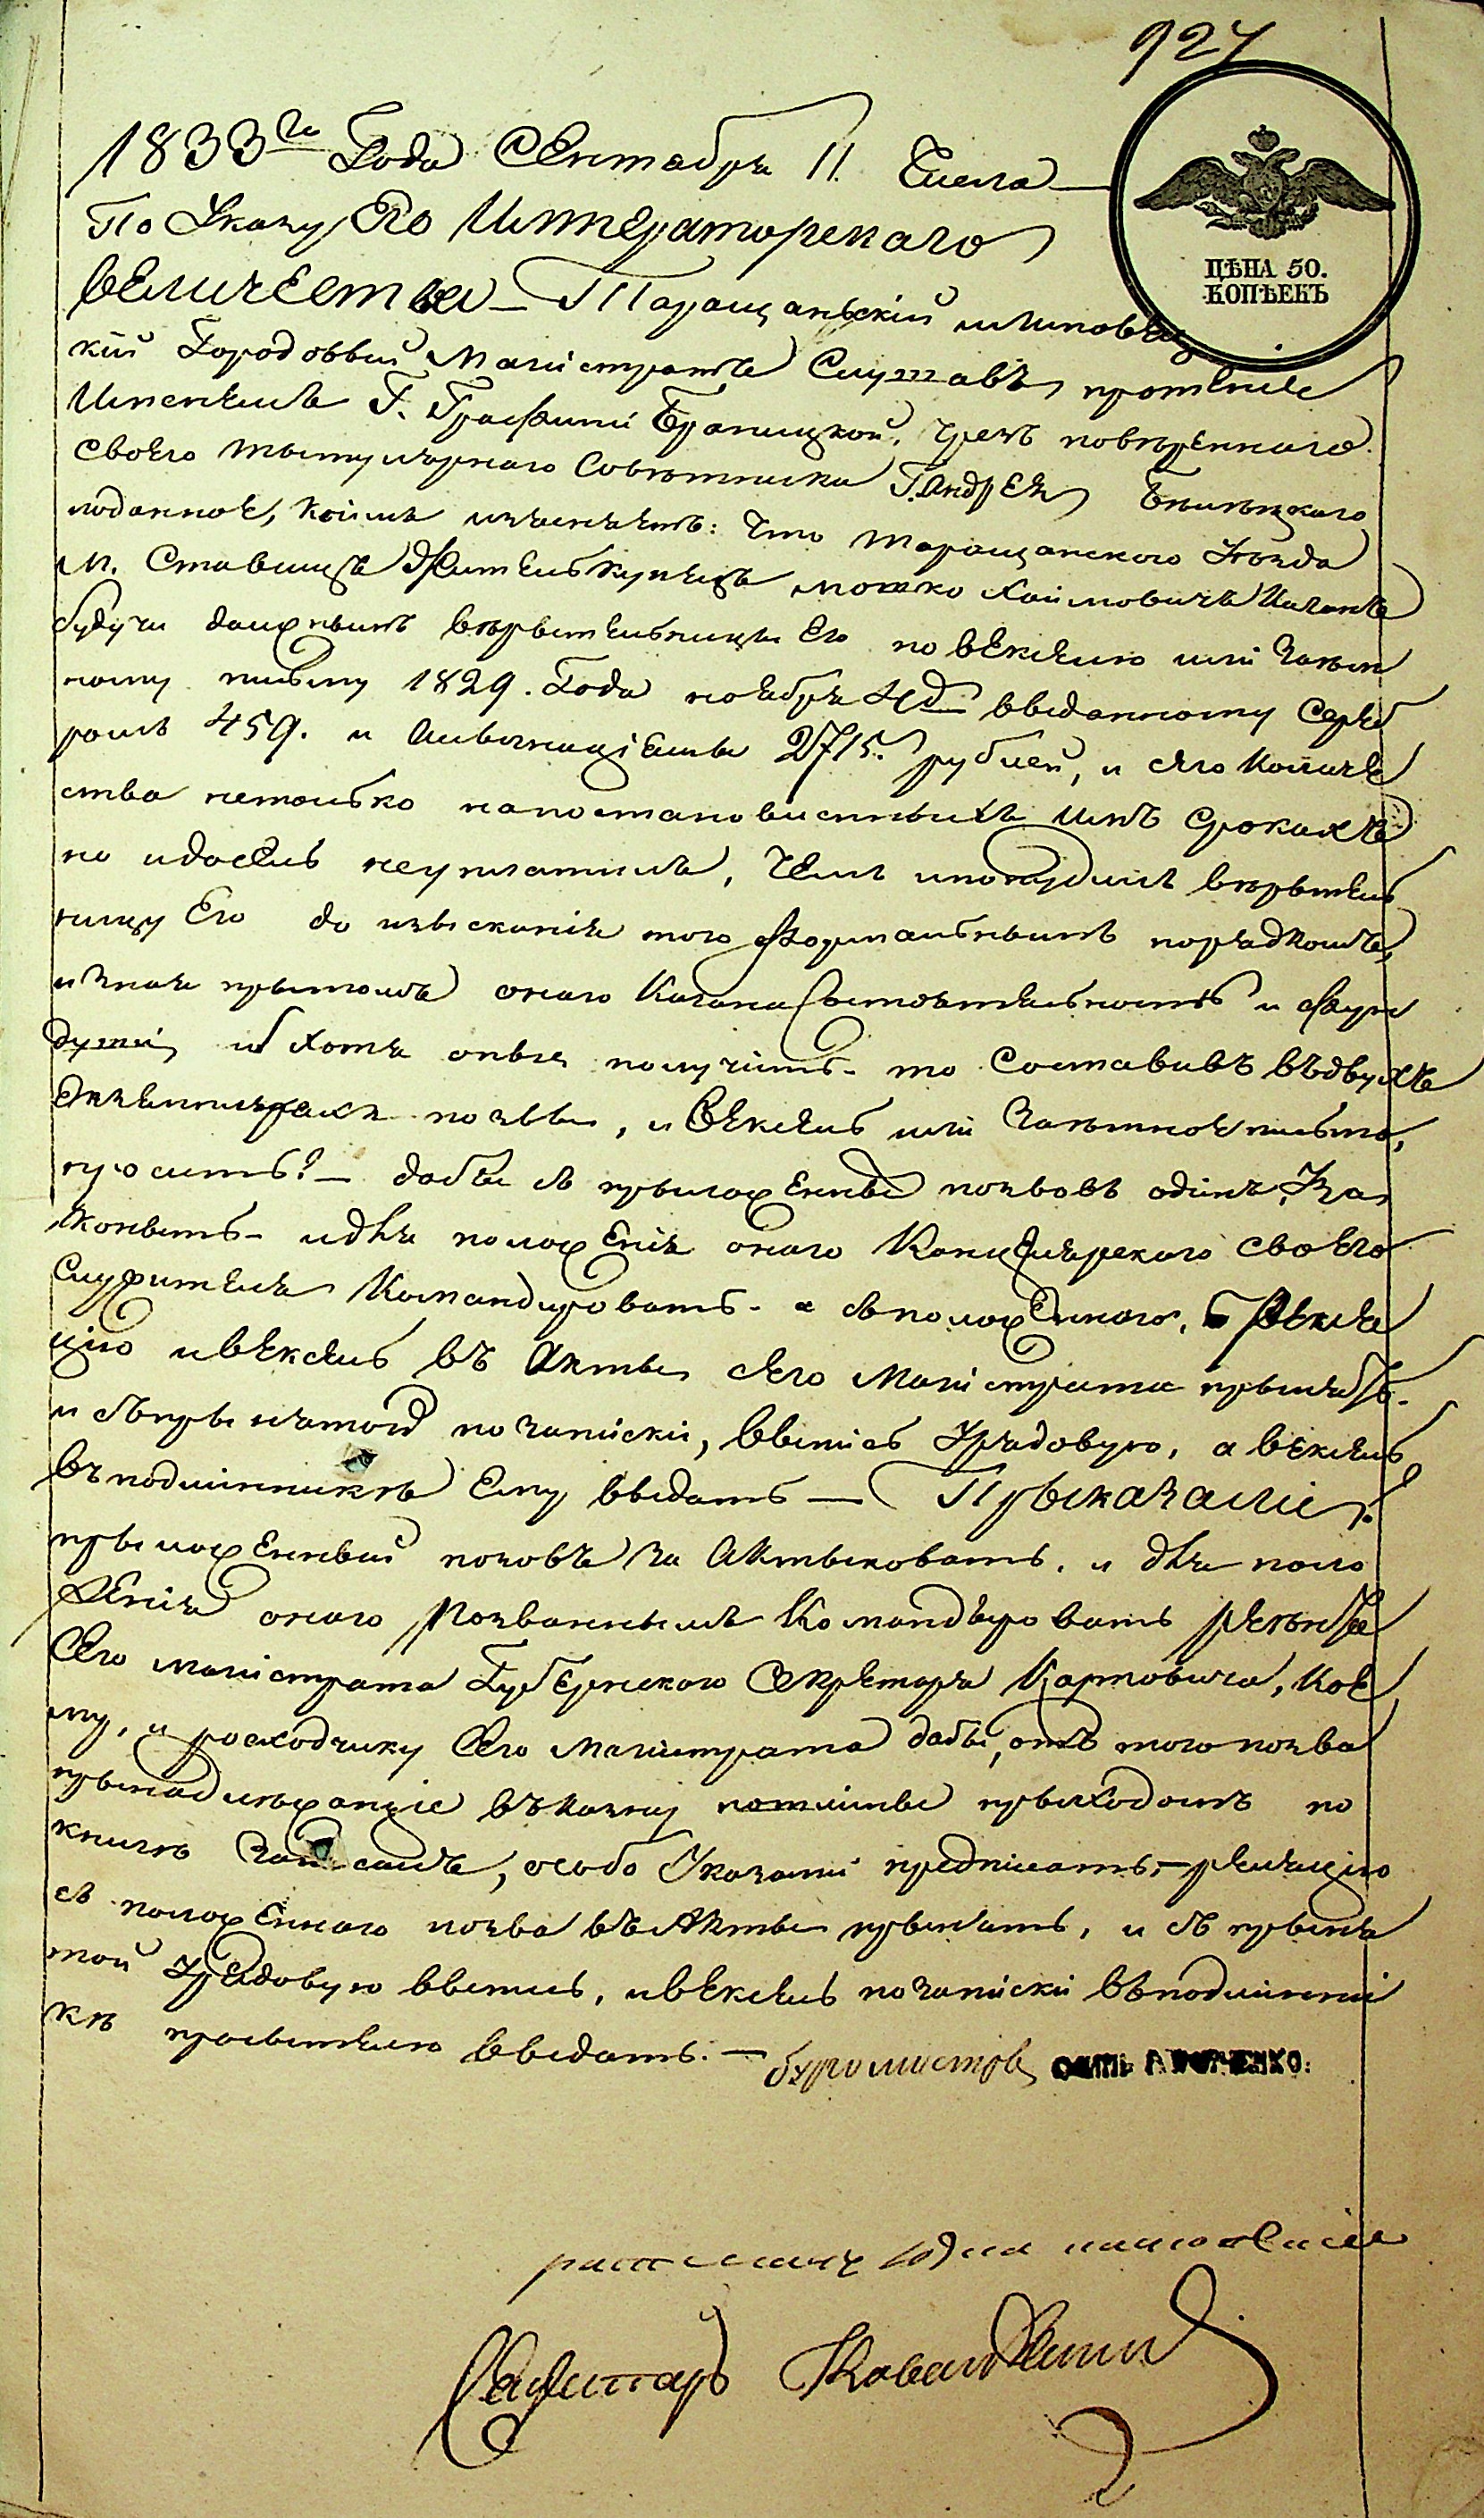 927
ЦѢНА 50.
КОПѢЕКЪ
1833го Года Сентября 11. Числа —
По Указу Его Императорскаго
величества — Таращаньскій и Липовец
кій Городовый Магістратъ Слушавъ прошеніе
Именемъ Г. Графини Браницкой, чрезъ повѣреннаго
своего тытулярнаго Совѣтника Г. Андрея
поданное, коимъ изъясняетъ: что таращанского уѣзда
м. Ставищъ Житель купецъ мошко Хаимовичъ Каганъ
будучи должнымъ вѣрытельницы его по векселю или Заѣм
ному письму 1829. Года ноября 4 д. выданному Сереб
ромъ 459. и Ассыгнаціями 2715. рублей, и сего Количе
ства нетолько на постановленныхъ имъ срокахъ
но и доселѣ неуплатилъ, чемъ и понудилъ вѣрытель
ницу Его до изысканія того Формальнымъ порядкомъ,
и зная прытомъ оного Кагана состоятельность и Фун
души, и хотя оные получить то Составивъ въ двухъ
экземплярахъ позвы, и Вексель или Заѣмное письмо,
просить: — дабы съ прыложенныхъ позвовъ одинъ Уза
конить и для положенія оного Канцелярского своего
служителя Командировать а съ положенного, Реля
цію и вексель въ Акты сего Магістрата прынять
и съ прынятой по запіскі, выпись Урядовую, а вексель
въ подлинникѣ Ему выдать — Прыказали:
прыложенный позовъ за Актыковать. и для поло
женія оного Позваннымъ Командыровать
Сего магістрата Губернского Секретаря Карповича, кое
му, и росходчику Сего магістрата дабы, отъ того позва
прынадлежащіе въ казну пошлины прыходомъ по
книгѣ Записалъ, особо Указами предписать, — реляцію
съ положенного позва въ Акты прынять, и съ прыня
той Урядовую выпись, и вексель по запіскі въ подлинні
кѣ просытелю выдать. — бурмистръ
Секретарь